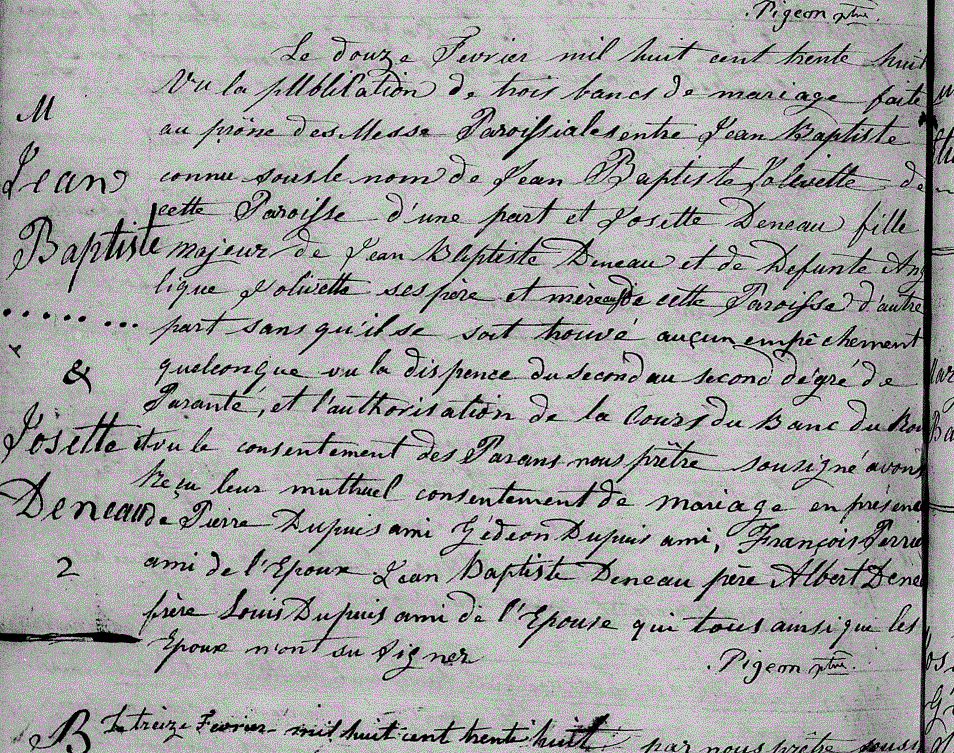 Pigeon ptre.
Le douze Fevrier mil huit cent trente huit
Vu la publication de trois bancs de mariage faite
au prône des Messe Paroissiales entre Jean Baptiste
connu sous le nom de Jean Baptiste Jolivette de
cette Paroisse d'une part et Josette Deneau fille
majeur de Jean Baptiste Deneau et de Defunte Ang
lique Jolivette ses père et mère aussi de cette Paroisse d'autre
part sans qu'il se soit trouvé aucun empêchement
quelconque vu la dispence du second au second dégré de
Paranté, et l'authorisation de la Cours du Banc du Roi
et vu le consentement des Parans nous prêtre sousigné avons
Reçu leur muthuel consentement de mariage en présence
de Pierre Dupuis ami Gédeon Dupuis ami, François Perrie
ami de l'Epoux Jean Baptiste Deneau père Albert Dene
frère Louis Dupuis ami de l'Epouse qui tous ainsi que les
Epoux n'ont su signer
Pigeon ptre.
M
Jean
Baptiste
........
&
Josette
Deneau
2
B
Le treize Fevrier mil huit cent trente huit par nous prêtre sousi